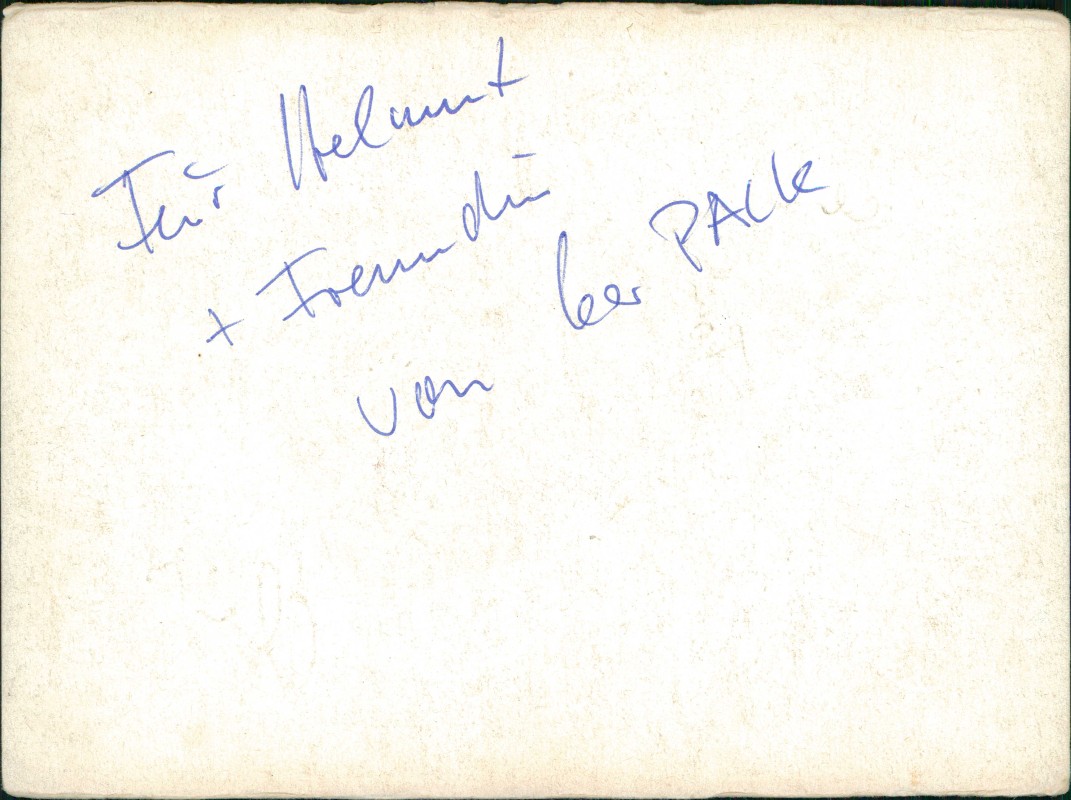 Für Helmut
+ Freundin
von ler PACK